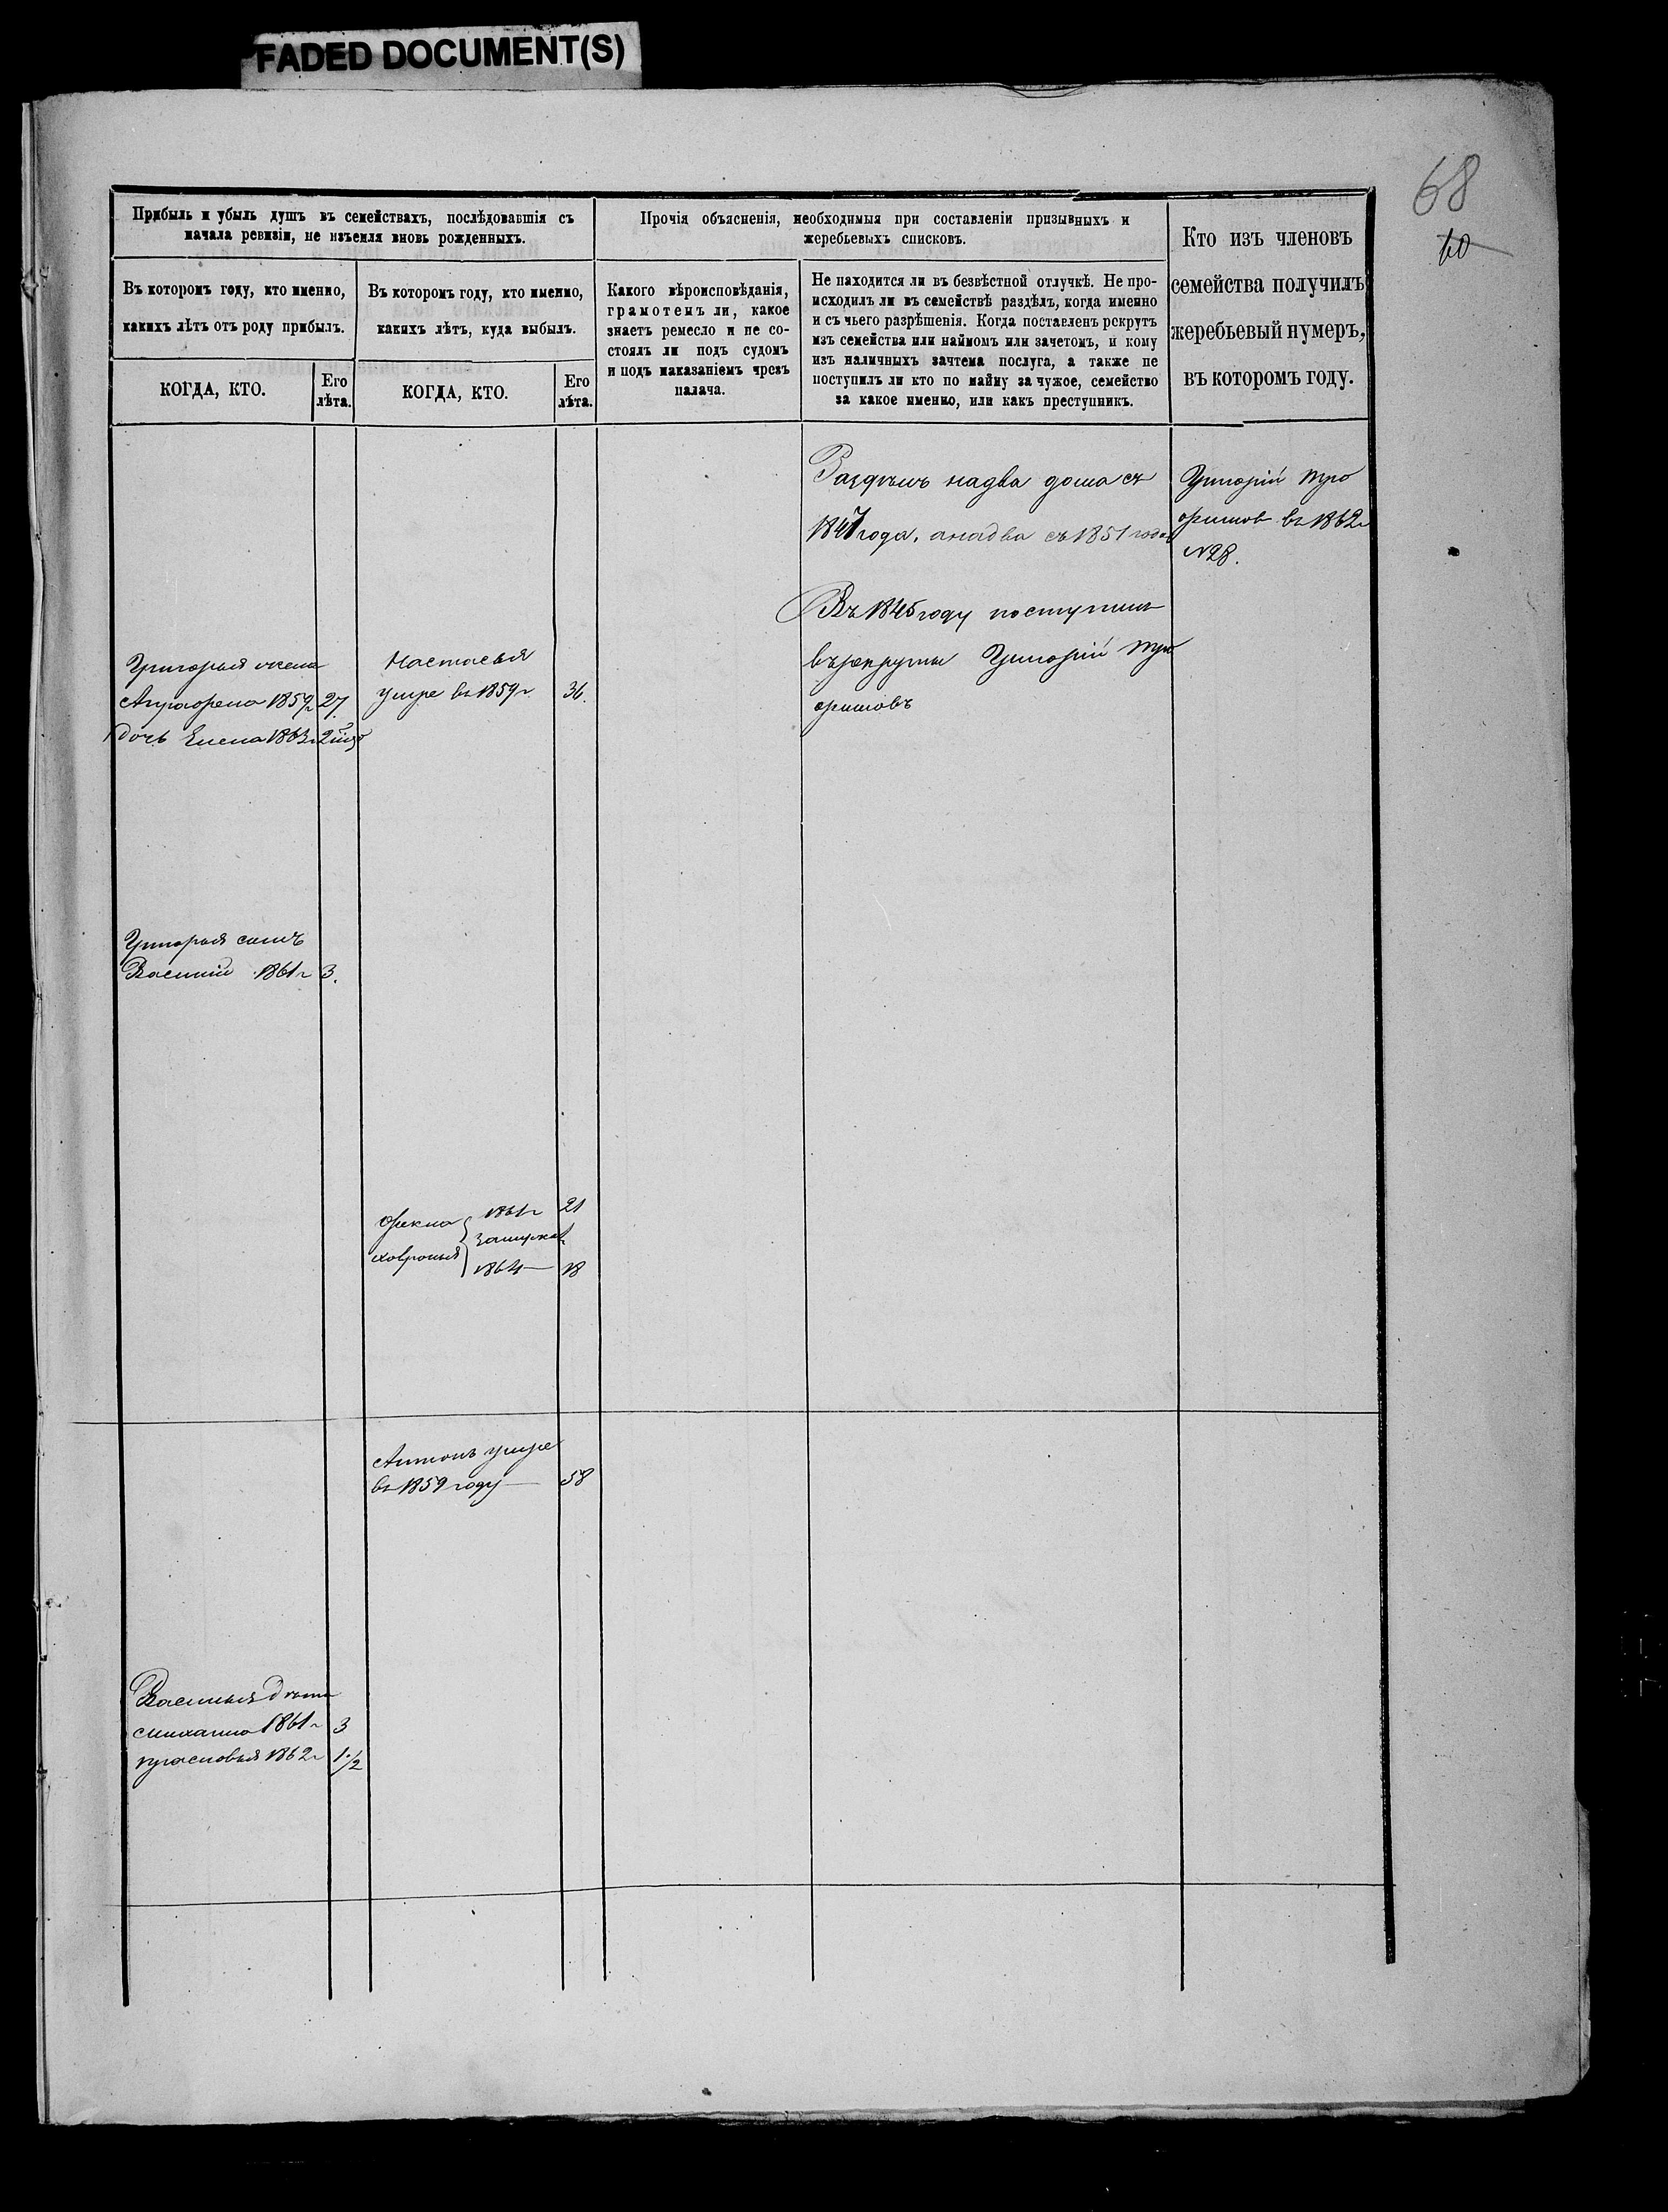 FADED DOCUMENT(S)
68
60
Прибыль и убыль душъ въ семействахъ, послѣдовавшія съ
начала ревизіи, не изъемля вновь рожденныхъ.
Въ которомъ году, кто именно,
какихъ лѣтъ отъ роду прибылъ.
КОГДА, КТО.
Его
лѣта.
Въ которомъ году, кто именно,
какихъ лѣтъ, куда выбылъ.
КОГДА, КТО.
Его
лѣта.
Прочія объясненія, необходимыя при составленіи призывныхъ и
жеребьевыхъ списковъ.
Какого вѣроисповѣданія,
грамотенъ ли, какое
знаетъ ремесло и не со-
стоялъ ли подъ судомъ
и подъ наказаніемъ чрезъ
палача.
Не находится ли въ безвѣстной отлучкѣ. Не про-
исходилъ ли въ семействѣ раздѣлъ, когда именно
и съ чьего разрѣшенія. Когда поставленъ рекрутъ
изъ семейства или наймомъ или зачетомъ, и кому
изъ наличныхъ зачтена послуга, а также не
поступилъ ли кто по найму за чужое, семейство
за какое именно, или какъ преступникъ.
Кто изъ членовъ
семейства получилъ
жеребьевый нумеръ,
въ которомъ году.
Раздѣлъ на два дома съ
1847 года, а на два съ 1851 года
Въ 1845 году поступилъ
въ рекруты Григорій Тро
фимовъ
Григорій Тро
фимов въ 1862 г
№28.
Григорья жена
Аграфена 1859 г 27.
дочь Елена 1863 г 2
Настасья
умре въ 1859 г. 36.
Григорья сынъ
Василій 1861 г 3.
Фекла 1861 г 21
замужъ
Ховронья 1864 18
Антонъ умре
въ 1859 году 58
Василья дѣти
Михаило 1861 г 3
Прасковья 1862 г 1 1/2